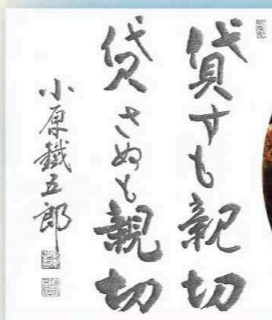 貸すも親切
貸さぬも親切
小原鐵五郎